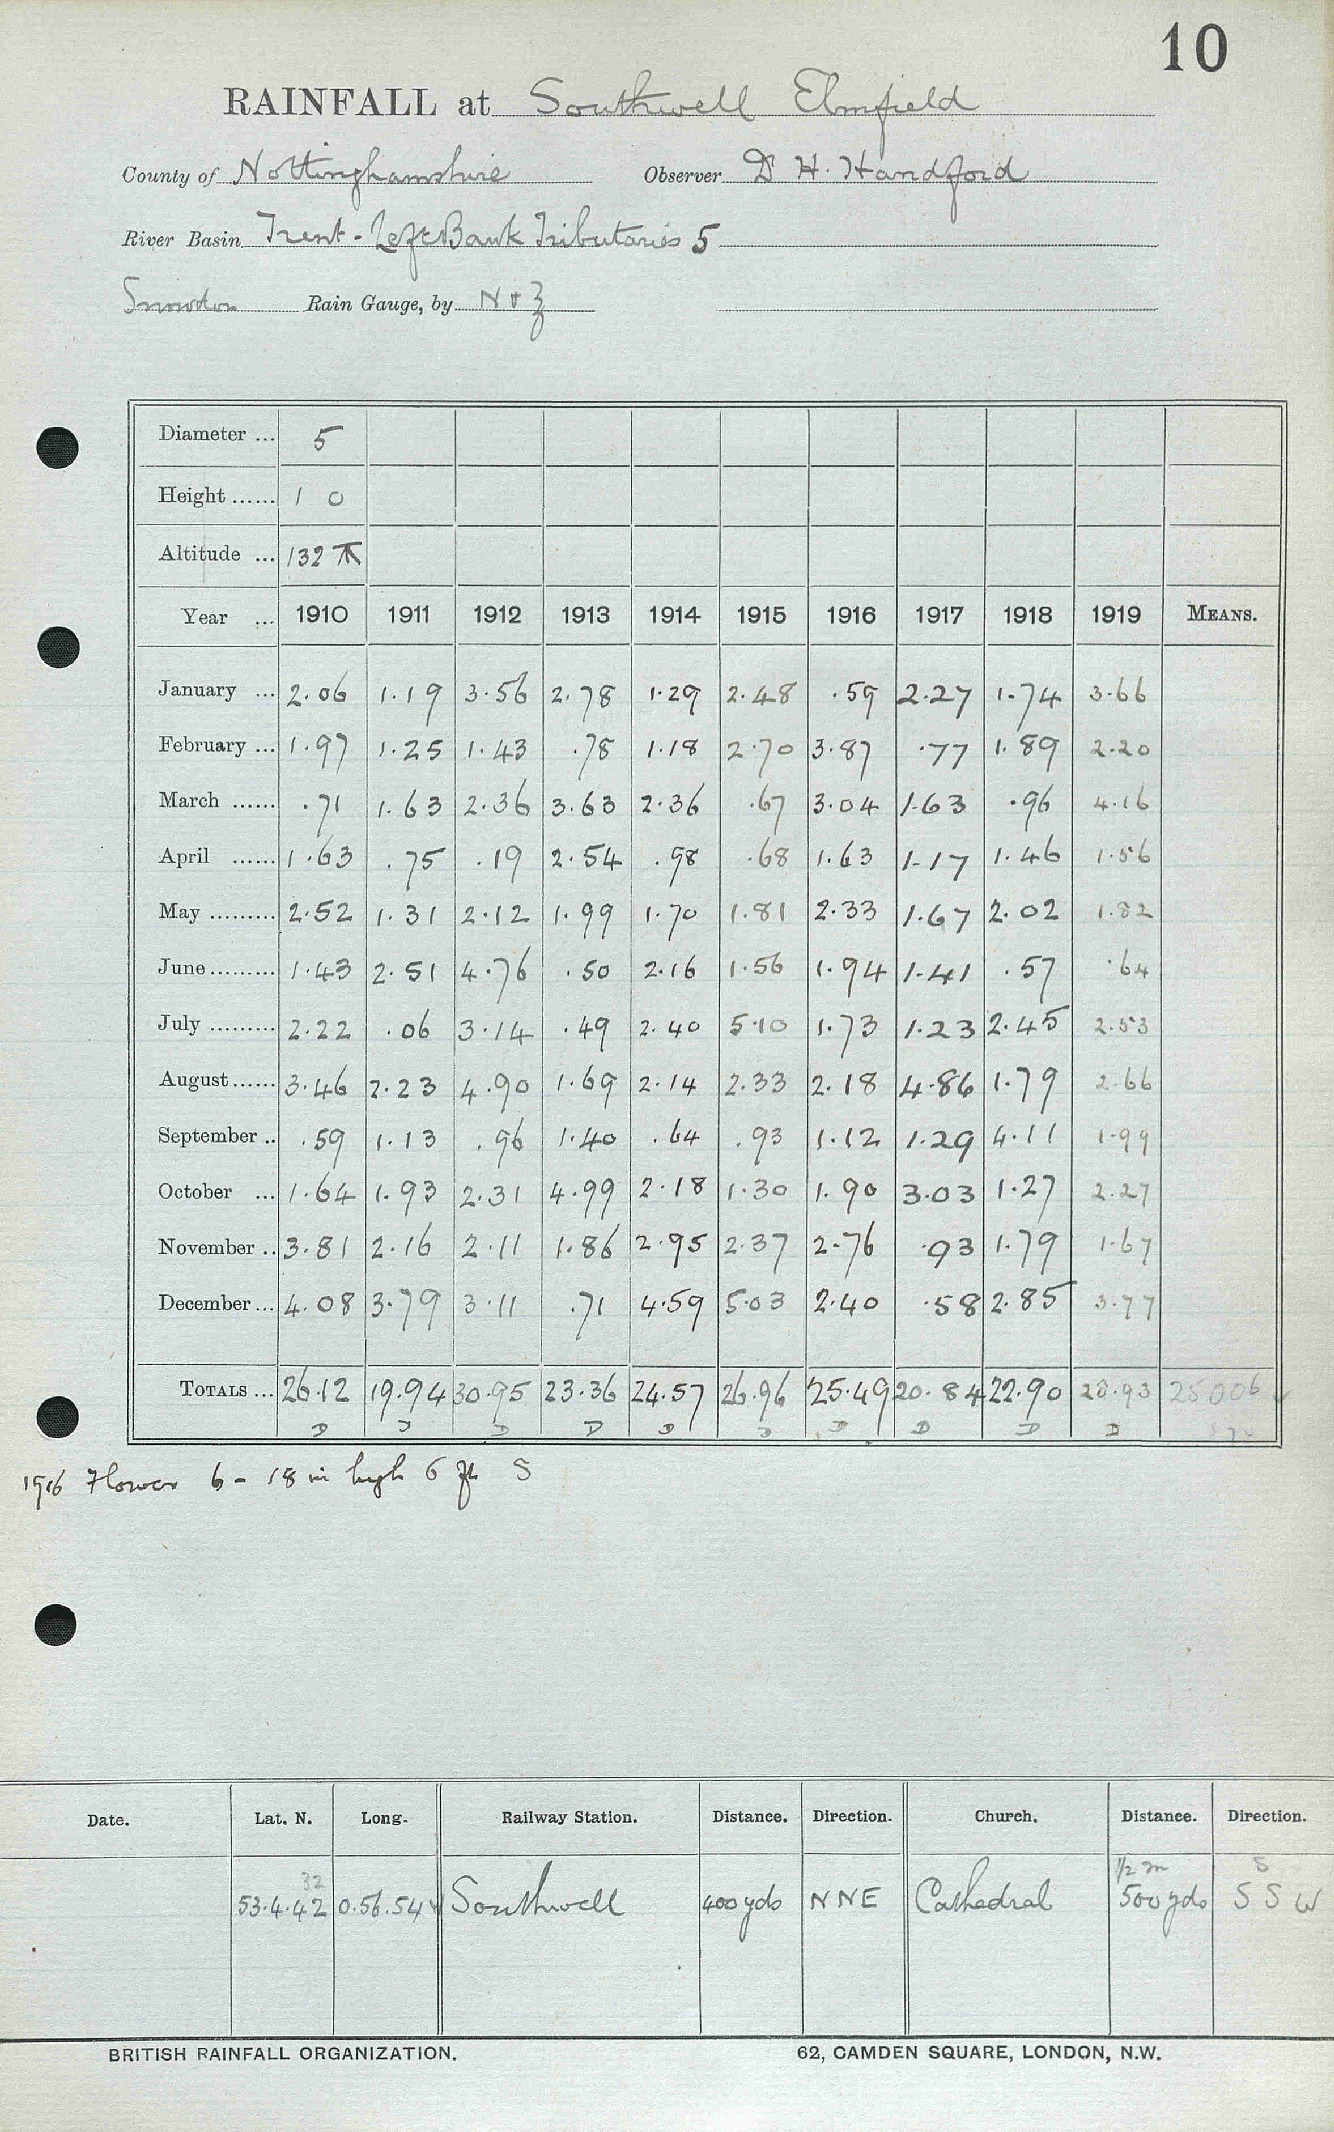 10
RAINFALL at Southwell Elmfield
County of Nottinghamshire Observer Dr H. Handford
River Basin Trent - Left Bank Tributaries 5
Snowdon Rain Gauge, by N & Z
Diameter ... 5
Height ...... 1 0
Altitude ... 132
Year ... 1910 1911 1912 1913 1914 1915 1916 1917 1918 1919 MEANS.
January ... 2.06 1.19 3.56 2.78 1.29 2.48 .59 2.27 1.74 3.66
February ... 1.97 1.25 1.43 .78 1.18 2.70 3.87 .77 1.89 2.20
March ...... .71 1.63 2.36 3.63 2.36 .67 3.04 1.63 .96 4.16
April ...... 1.63 .75 .19 2.54 .98 .68 1.63 1.17 1.46 1.56
May ......... 2.52 1.31 2.12 1.99 1.70 1.81 2.33 1.67 2.02 1.82
June ......... 1.43 2.51 4.76 .50 2.16 1.56 1.94 1.41 .57 .64
July ......... 2.22 .06 3.14 .49 2.40 5.10 1.73 1.23 2.45 2.53
August ...... 3.46 2.23 4.90 1.69 2.14 2.33 2.18 4.86 1.79 2.66
September .. .59 1.13 .96 1.40 .64 .93 1.12 1.29 4.11 1.99
October ... 1.64 1.93 2.31 4.99 2.18 1.30 1.90 3.03 1.27 2.27
November .. 3.81 2.16 2.11 1.86 2.95 2.37 2.76 .93 1.79 1.67
December ... 4.08 3.79 3.11 .71 4.59 5.03 2.40 .58 2.85 3.77
TOTALS ... 26.12 19.94 30.95 23.36 24.57 26.96 25.49 20.84 22.90 28.93 25.006
D D D D D D D D D D
1916 Flower 6 - 18 in high 6 ft S
Date. Lat. N. Long. Railway Station. Distance. Direction. Church. Distance. Direction.
32 1/2 m S
53.4.42 0.56.54 Southwell 400 yds NNE Cathedral 500 yds SSW
BRITISH RAINFALL ORGANIZATION. 62, CAMDEN SQUARE, LONDON, N.W.